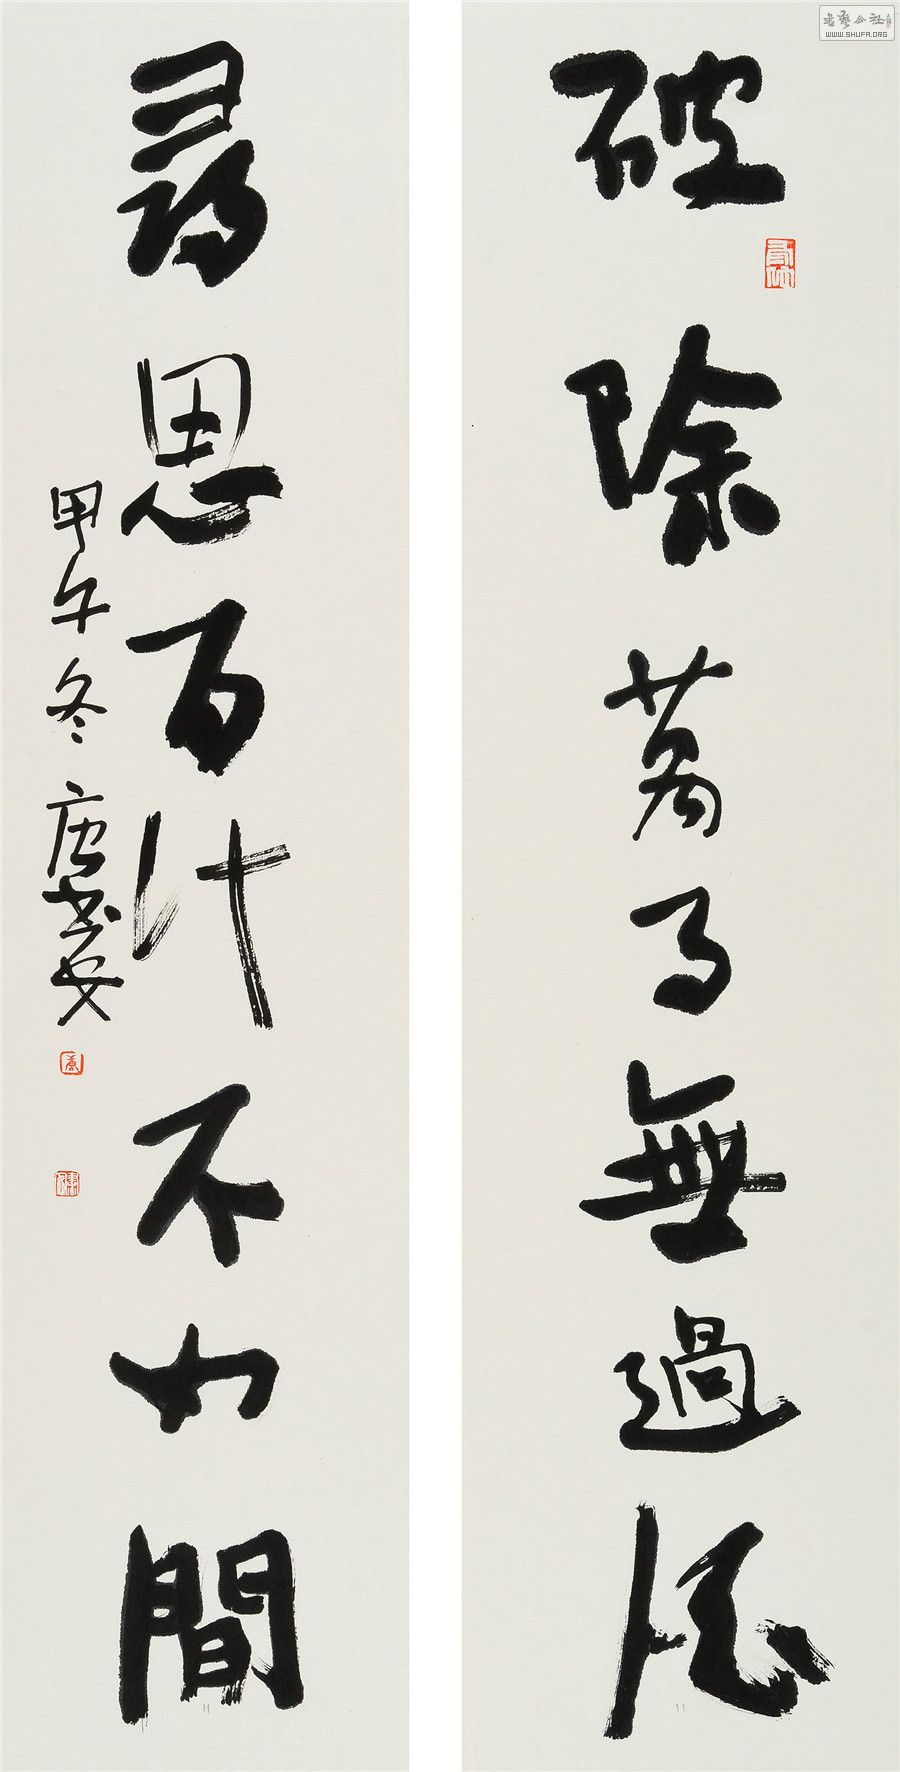 破除萬事無過酒
尋思百計不如閒
甲午冬唐書安
書藝公社
WWW.SHUFA.ORG